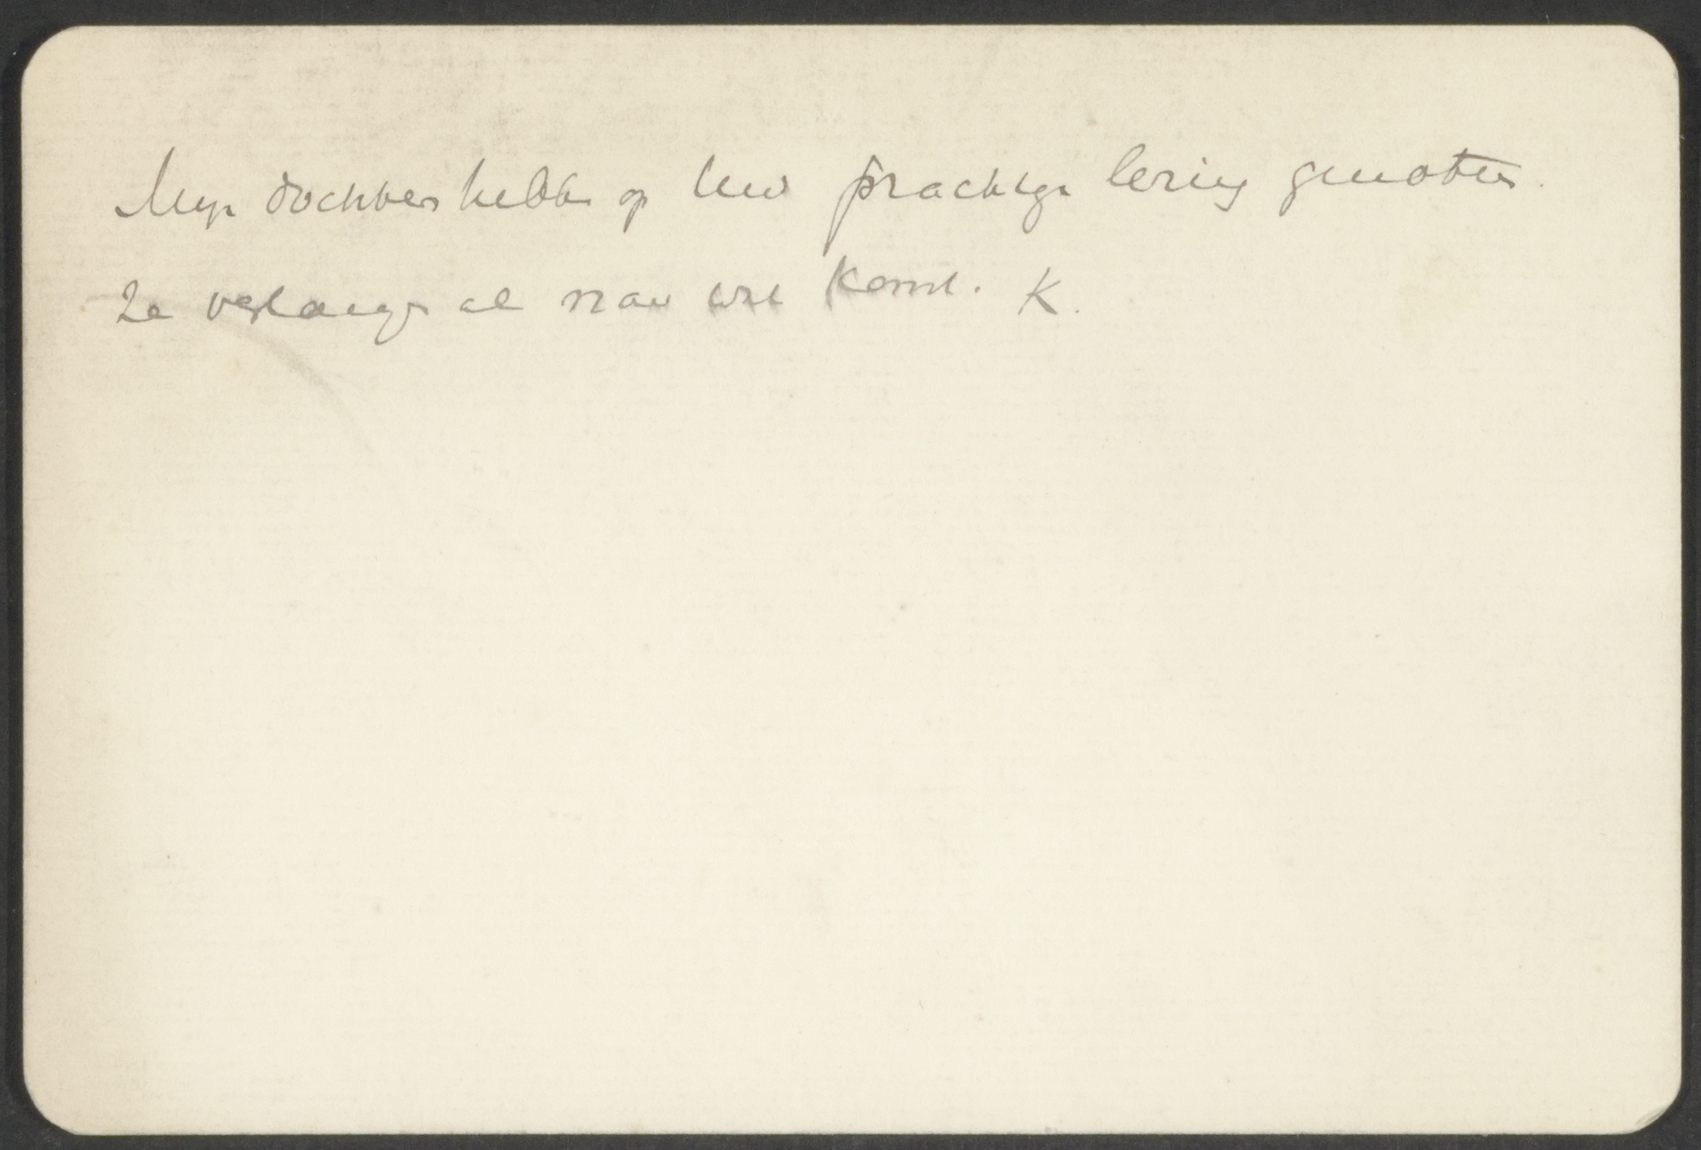 Mijn dochters hebben op Uw prachtige lezing genoten.
Ze verlangen al naar wat komt. K.